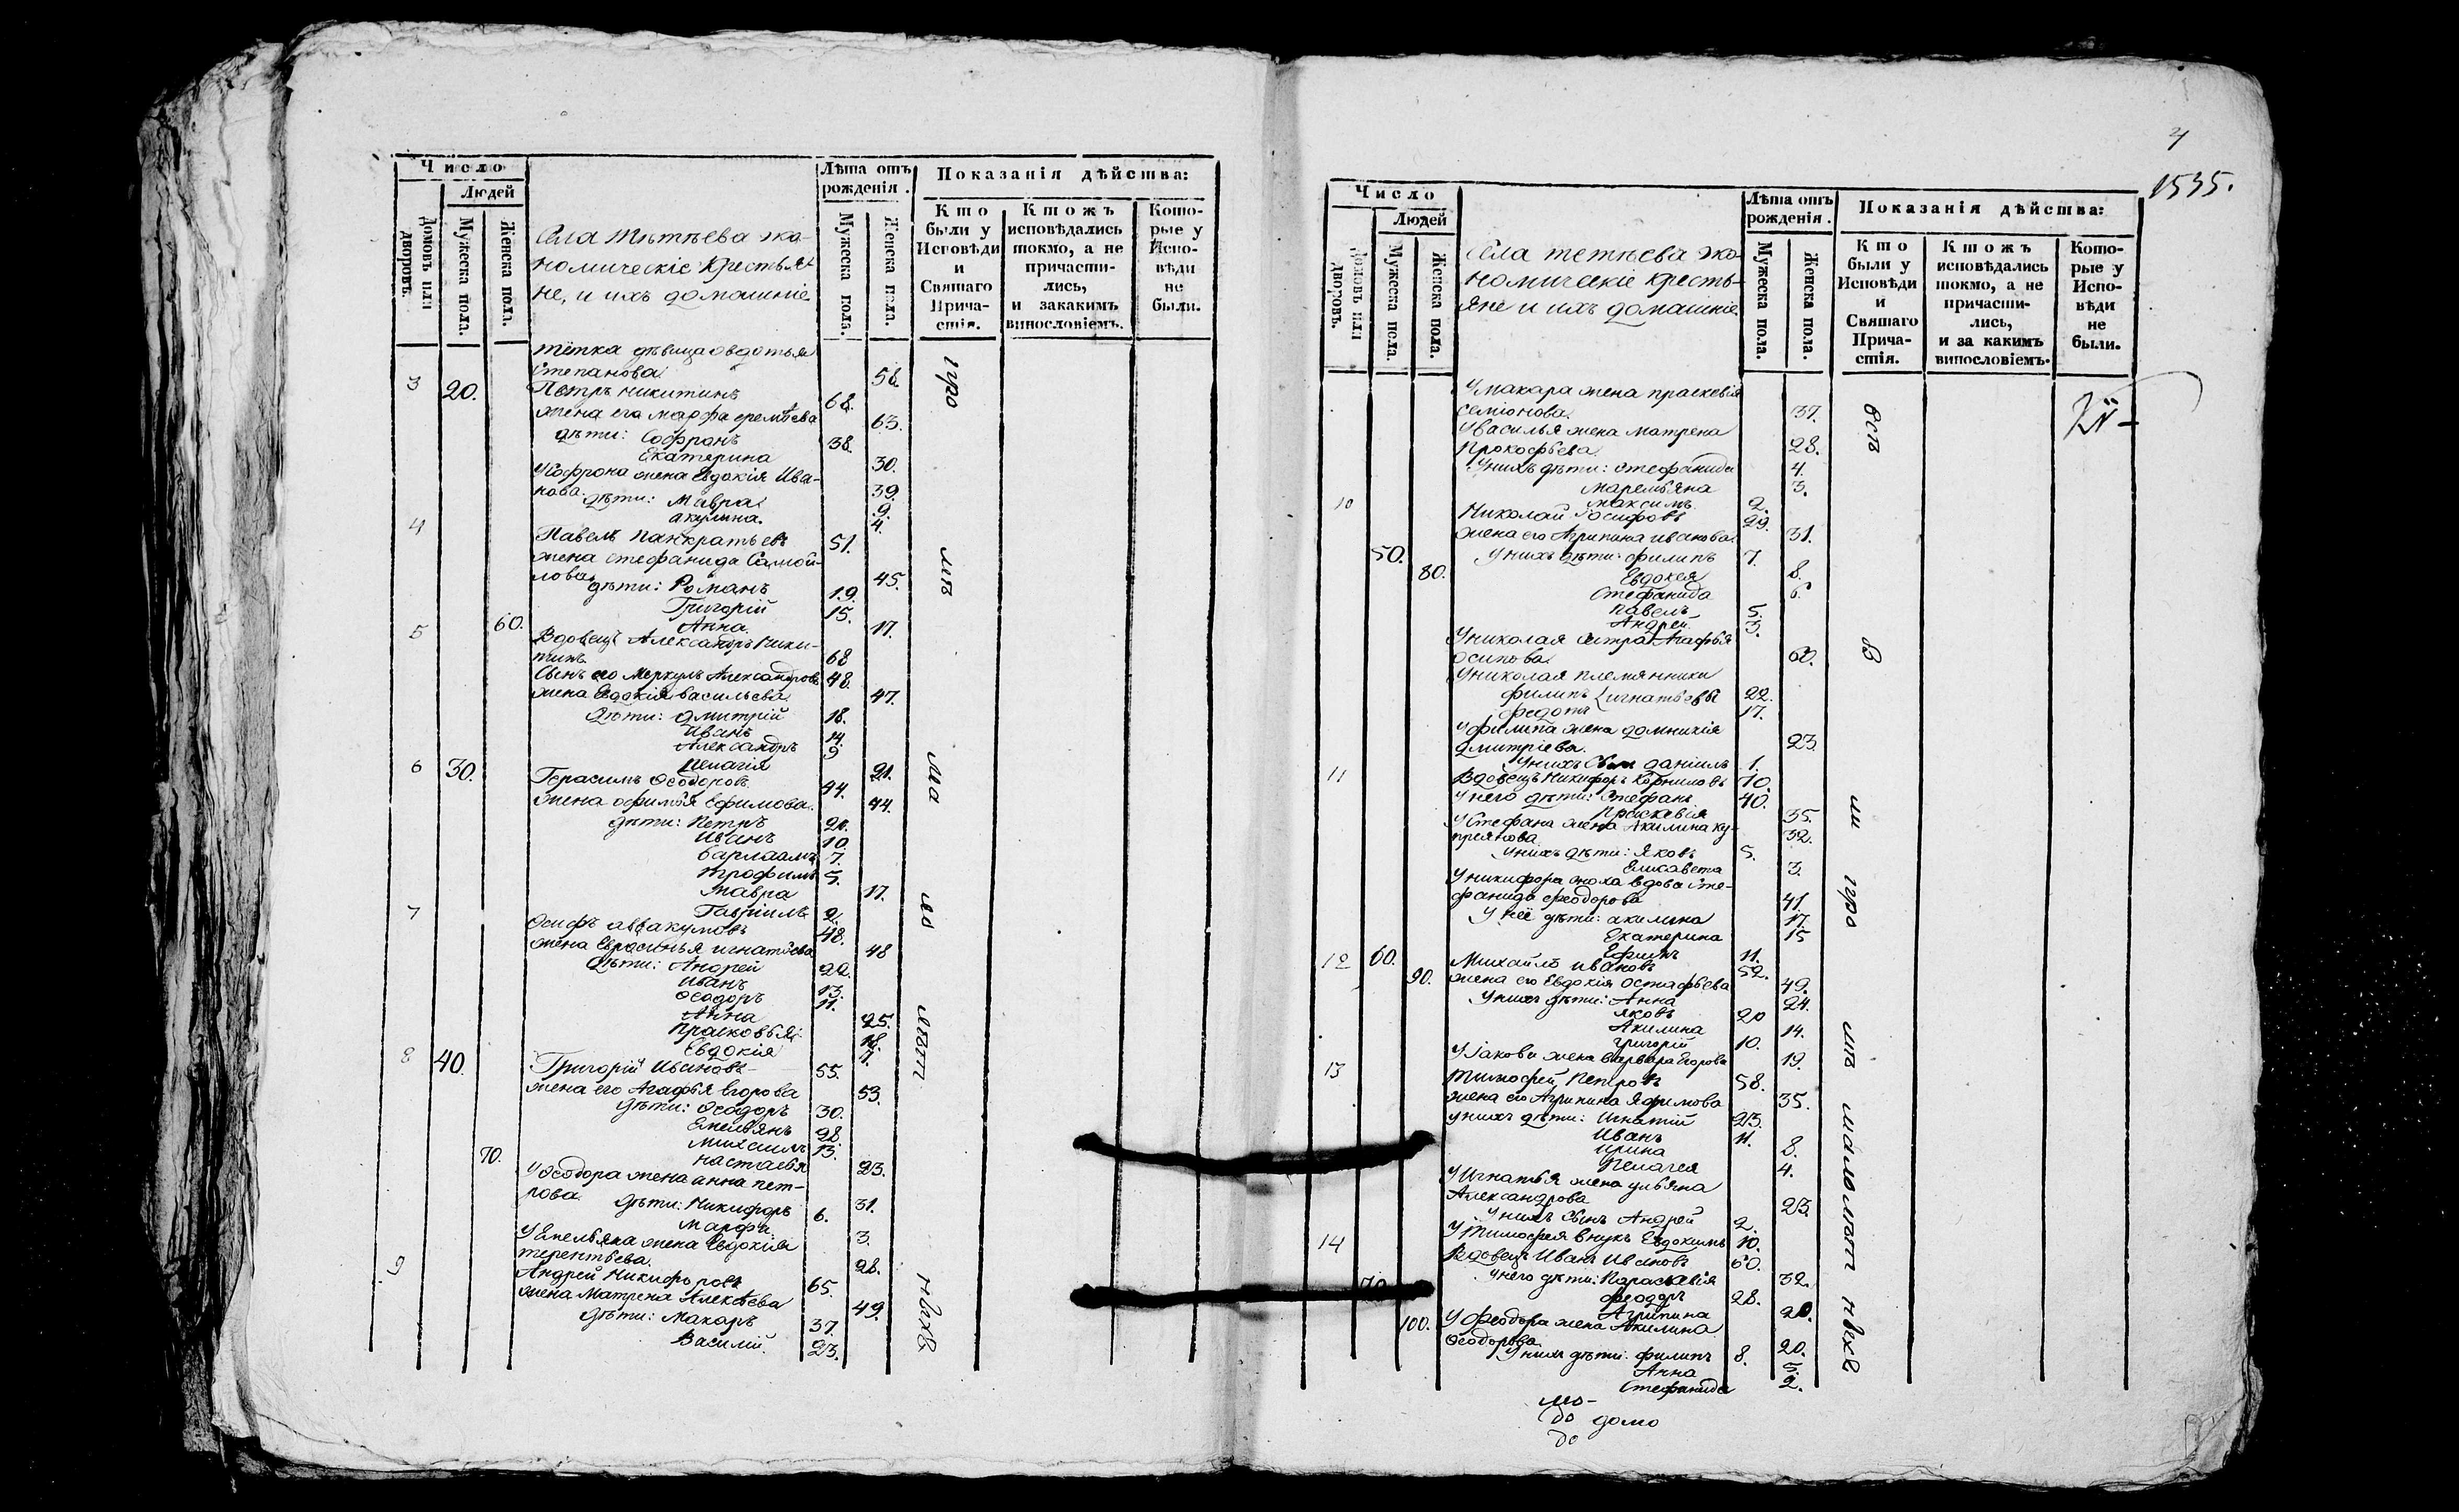 Число
Людей
Домовъ или дворовъ.
Мужеска пола.
Женска пола.
Села тѣтѣева эко-
номическіе крестья-
не, и ихъ домашніе
Лѣта отъ рожденія.
Мужеска пола.
Женска пола.
Показанія дѣйства:
Кто были у Исповѣди и Святаго Причастія.
Ктожъ исповѣдались токмо, а не причастились, и закакимъ винословіемъ.
Которые у Исповѣди не были.
тётка дѣвица овдотья
степанова 58.
3 20. Петръ никитинъ 68.
жена его марфа еремѣева 63.
дѣти: Софронъ 38.
Екатерина 30.
У Софрона жена Евдокія Ива-
нова. 39.
дѣти: Мавра 9.
акулина. 4.
4 Павелъ Панкратьевъ 51.
жена стефанида Самой-
лова 45.
дѣти: Романъ 19.
Григорій 15.
60. Анна 17.
5 Вдовецъ Александръ Ники-
тинъ 68
Сынъ его Меркулъ Александровъ 48.
жена Евдокія васильева 47.
дѣти: дмитрій 18.
Иванъ 14.
Александръ 9
пелагія 21.
6 30. Герасимъ Ѳеодоровъ 44.
жена офимья Ефимова. 44.
дѣти: Петръ 20.
Иванъ 10.
варлаамъ 7.
трофимъ 5.
Мавра 17.
Гавріилъ 2.
7 Осифъ аввакумовъ 48.
жена Евросинья игнатьева 48
дѣти: Андрей 22.
Иванъ 13.
Ѳеодоръ 11.
Анна 25.
Прасковья 18.
Евдокія 7.
8 40. Григорій Ивановъ 55.
жена его Агафья Егорова 53.
дѣти: Ѳеодоръ 30.
Емельянъ 28.
Михаилъ 13.
70. настасья 23.
У Ѳеодора жена анна пет-
рова 31.
дѣти: Никифоръ 6.
Марфа 3.
У Емельяна жена Евдокія
терентьева. 28.
9 Андрей Никифоровъ 65.
жена Матрена Алексѣева 49.
дѣти: Макаръ 37.
Василій. 23.
4
1535.
Число
Людей
Домовъ или дворовъ.
Мужеска пола.
Женска пола.
Села тетѣева эко-
номическіе кресть-
яне и ихъ домашніе
Лѣта отъ рожденія.
Мужеска пола.
Женска пола.
Показанія дѣйства:
Кто были у Исповѣди и Святаго Причастія.
Ктожъ исповѣдались токмо, а не причастились, и за какимъ винословіемъ.
Которые у Исповѣди не были.
У макара жена прасковія
семіонова. 37.
У василья жена матрена
Прокофьева 28.
У нихъ дѣти: стефанида 4.
маремьяна 3.
максимъ 2.
10 Николай Іосифовъ 29.
жена его Агрипина иванова. 31.
50. У нихъ дѣти: филипъ 7.
80. Евдокея 8.
Стефанида 6.
павелъ 5.
Андрей 3.
У николая сестра Агафья
осипова 60.
У николая племянники
филипъ игнатьевы 22.
федотъ 17.
У филипа жена домникія
дмитріева. 23.
У нихъ сынъ даніилъ 1.
11 Вдовецъ Никифоръ Корниловъ 70.
У него дѣти: Стефанъ 40.
Прасковія 35.
У Стефана жена Акилина ку-
преянова 32.
У нихъ дѣти: Яковъ 5.
Елисавета 3.
У никифора сноха вдова сте-
фанида феодорова 41.
У неё дѣти: акилина 17.
Екатерина 15
Ефимъ 11.
12 60. Михайлъ ивановъ 52.
90. жена его Евдокія остафьева 49.
У нихъ дѣти: Анна 24.
яковъ 20
Акилина 14.
Григорій 10.
У Іакова жена варвара Егорова 19.
13 Тимофей Петровъ 58.
жена его Агрипина Яфимова 35.
У нихъ дѣти: Игнатій 23.
Иванъ 11.
Ирина 8.
Пелагея 4.
У Игнатья жена ульяна
Александрова 23.
У нихъ сынъ Андрей 2.
У Тимофея внукъ Евдокимъ 10.
14 Вдовецъ Иванъ Ивановъ 60.
У него дѣти: Парасковія 32.
70 феодоръ 28.
Агрипина 20.
100. У Феодора жена Акилина
Ѳеодорова 20.
У нихъ дѣти: филипъ 8.
Анна 5.
Стефанида 2.
мо-
до домо
до